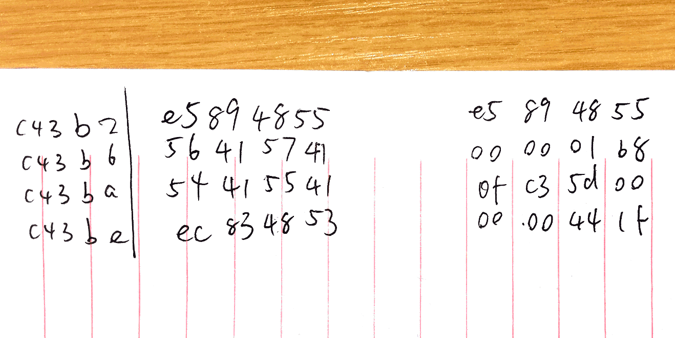 c43b2 e5 89 48 55 e5 89 48 55
c43b6 56 41 57 41 00 00 01 b8
c43ba 54 41 55 41 0f c3 5d 00
c43be ec 83 48 53 00 .00 44 1f